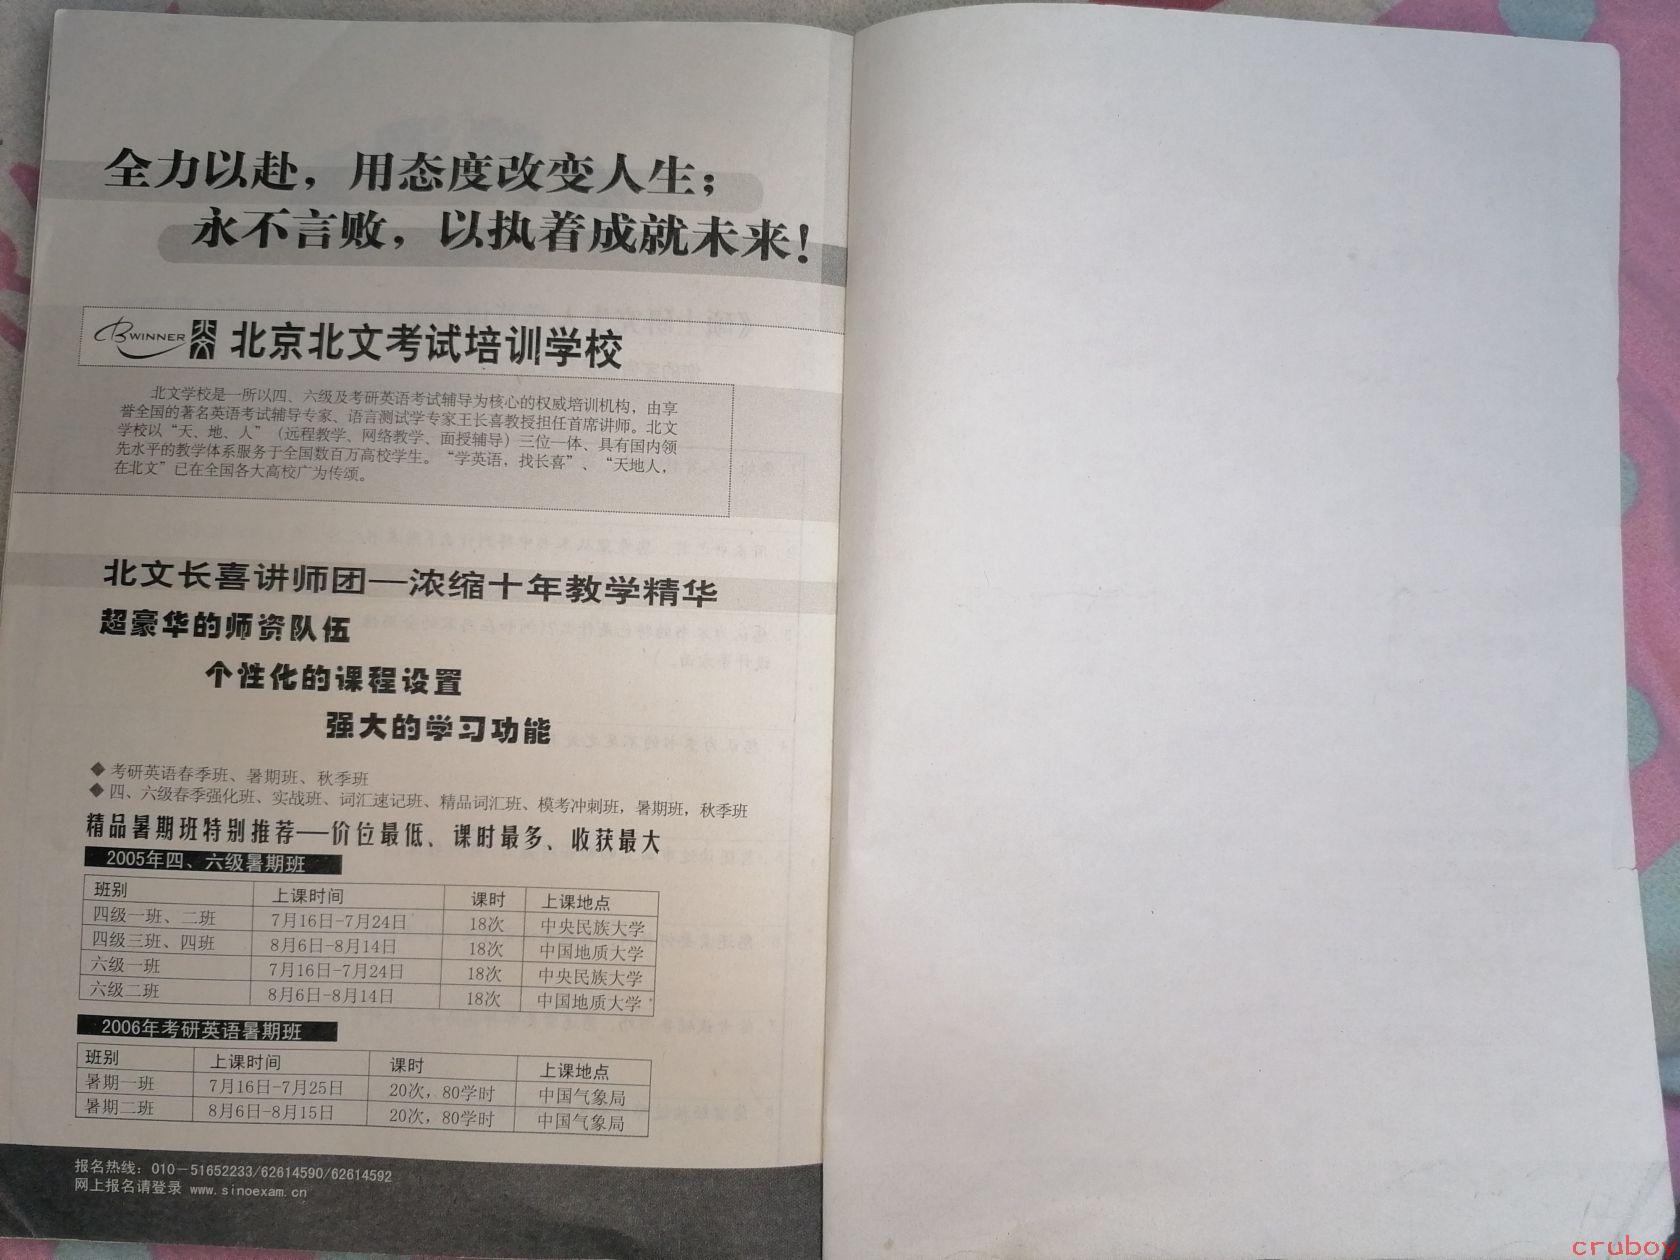 全力以赴，用态度改变人生；
永不言败，以执着成就未来！
BWINNER 北文 北京北文考试培训学校
北文学校是一所以四、六级及考研英语考试辅导为核心的权威培训机构，由享
誉全国的著名英语考试辅导专家、语言测试学专家王长喜教授担任首席讲师。北文
学校以“天、地、人”（远程教学、网络教学、面授辅导）三位一体、具有国内领
先水平的教学体系服务于全国数百万高校学生。“学英语，找长喜”、“天地人，
在北文”已在全国各大高校广为传颂。
北文长喜讲师团—浓缩十年教学精华
超豪华的师资队伍
个性化的课程设置
强大的学习功能
◆ 考研英语春季班、暑期班、秋季班
◆ 四、六级春季强化班、实战班、词汇速记班、精品词汇班、模考冲刺班，暑期班，秋季班
精品暑期班特别推荐——价位最低、课时最多、收获最大
2005年四、六级暑期班
班别 上课时间 课时 上课地点
四级一班、二班 7月16日-7月24日 18次 中央民族大学
四级三班、四班 8月6日-8月14日 18次 中国地质大学
六级一班 7月16日-7月24日 18次 中央民族大学
六级二班 8月6日-8月14日 18次 中国地质大学
2006年考研英语暑期班
班别 上课时间 课时 上课地点
暑期一班 7月16日-7月25日 20次，80学时 中国气象局
暑期二班 8月6日-8月15日 20次，80学时 中国气象局
报名热线：010－51652233/62614590/62614592
网上报名请登录 www.sinoexam.cn
cruboy